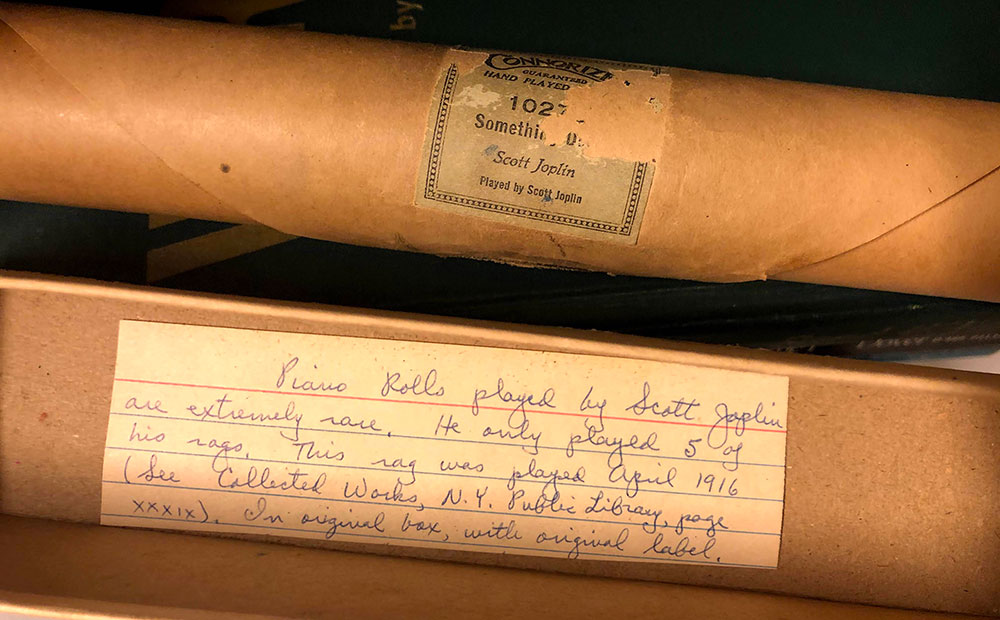 by
CONNORIZ
GUARANTEED
HAND PLAYED
1027
Somethi
Scott Joplin
Played by Scott Joplin
Piano Rolls played by Scott Joplin
are extremely rare. He only played 5 of
his rags. This rag was played April 1916
(See Collected Works, N.Y. Public Library, page
XXXIX). In original box, with original label.